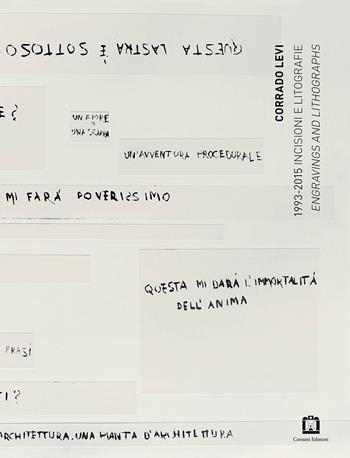 QUESTA LASTRA È SOTTOSO
E?
UN FIORE
O
UNA SCURA
UN'AVVENTURA PROCEDURALE
MI FARÁ POVERISSIMO
QUESTA MI DARÁ L'IMMORTALITÁ
DELL'ANIMA
FRASI
TI?
ARCHITETTURA, UNA PIANTA D'ARCHITETTURA
CORRADO LEVI
1993-2015 INCISIONI E LITOGRAFIE
ENGRAVINGS AND LITHOGRAPHS
Corraini Edizioni